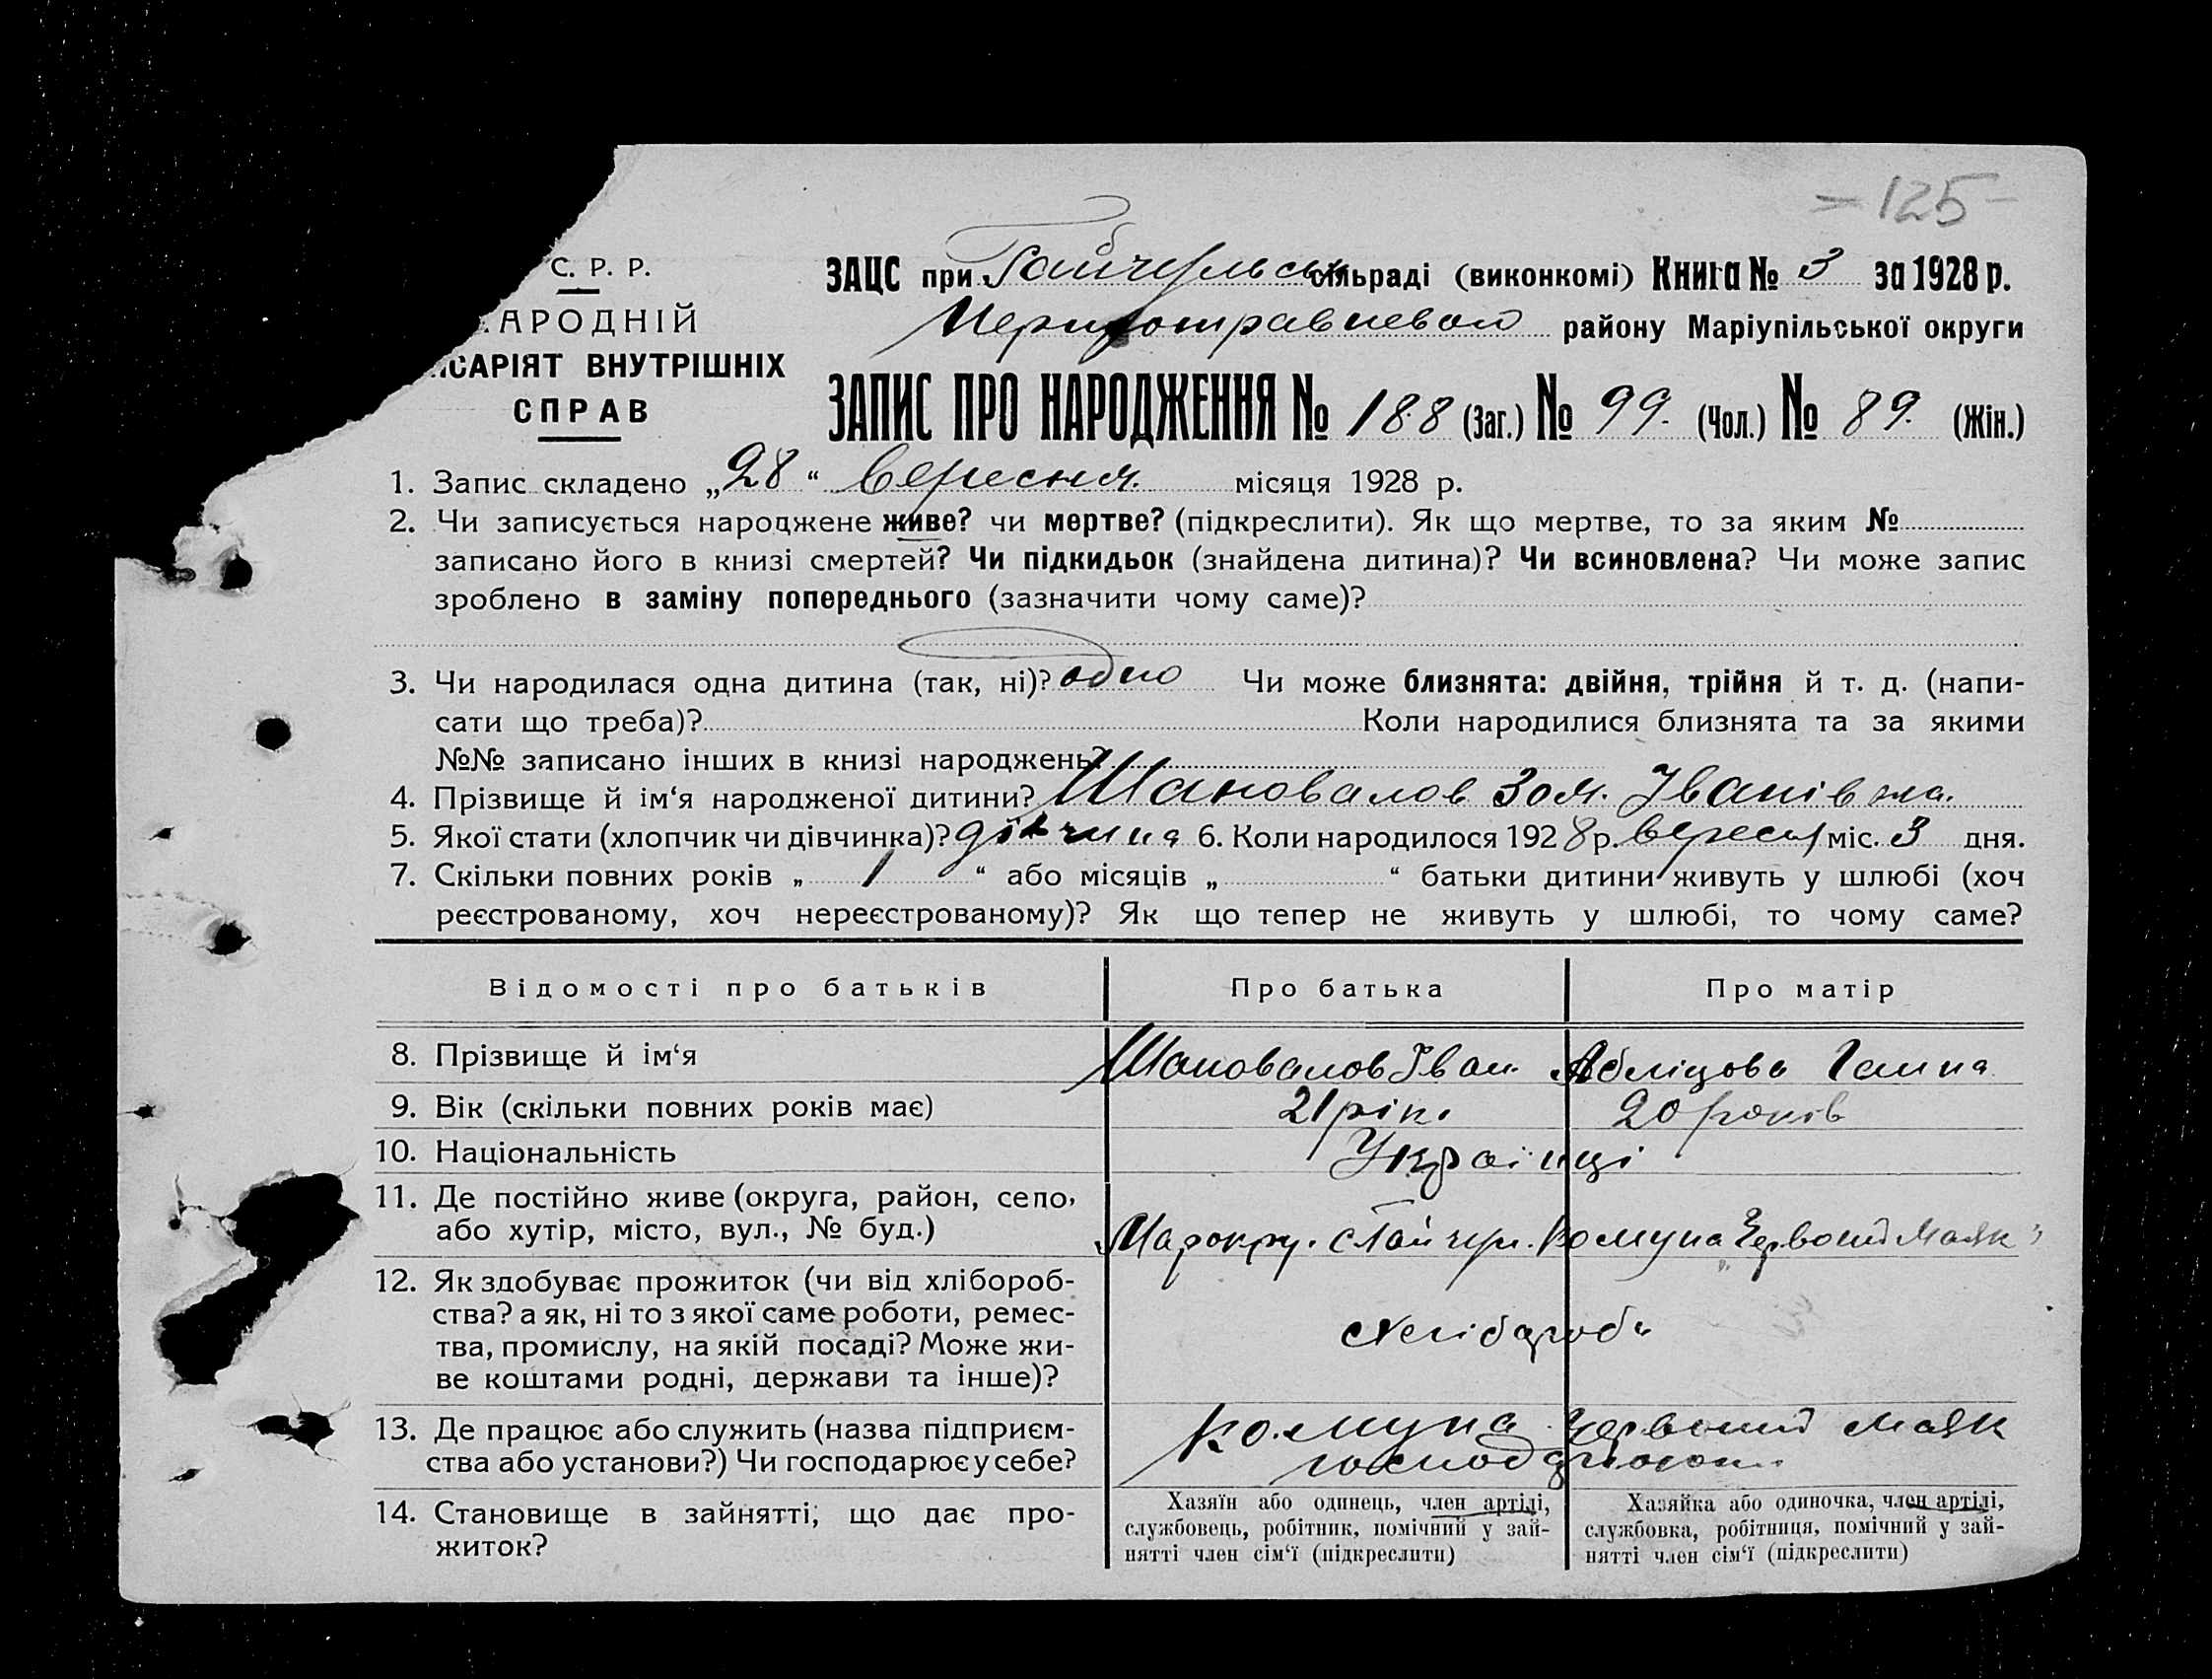 - 125 -
С. Р. Р.
ЗАЦС при Гайчульськ сільраді (виконкомі) Книга № 3 за 1928 р.
АРОДНІЙ
Першотравневого району Маріупільської округи
САРІЯТ ВНУТРІШНІХ
СПРАВ
ЗАПИС ПРО НАРОДЖЕННЯ № 188 (Заг.) № 99. (Чол.) № 89. (Жін.)
1. Запис складено „28“ вересня. місяця 1928 р.
2. Чи записується народжене живе? чи мертве? (підкреслити). Як що мертве, то за яким №
записано його в книзі смертей? Чи підкидьок (знайдена дитина)? Чи всиновлена? Чи може запис
зроблено в заміну попереднього (зазначити чому саме)?
3. Чи народилася одна дитина (так, ні)? одно Чи може близнята: двійня, трійня й т. д. (напи-
сати що треба)? Коли народилися близнята та за якими
№№ записано інших в книзі народжень?
4. Прізвище й ім‘я народженої дитини? Шаповалов Зоя. Іванівна.
5. Якої стати (хлопчик чи дівчинка)? дівчина 6. Коли народилося 1928 р. вересня міс. 3 дня.
7. Скільки повних років „ 1 “ або місяців „ “ батьки дитини живуть у шлюбі (хоч
реєстрованому, хоч нереєстрованому)? Як що тепер не живуть у шлюбі, то чому саме?
Відомості про батьків Про батька Про матір
8. Прізвище й ім‘я Шаповалов Іван Абліцова Ганна
9. Вік (скільки повних років має) 21 рік. 20 років
10. Національність Українці
11. Де постійно живе (округа, район, село,
або хутір, місто, вул., № буд.) Марокру. с Гайчул. Комуна „Червоний Маяк“
12. Як здобуває прожиток (чи від хлібороб-
ства? а як, ні то з якої саме роботи, ремес-
тва, промислу, на якій посаді? Може жи-
ве коштами родні, держави та інше)?
Хлібороби
13. Де працює або служить (назва підприєм-
ства або установи?) Чи господарює у себе?
Комуна Червоний Маяк
14. Становище в зайнятті, що дає про-
житок?
Хазяїн або одинець, член артілі,
службовець, робітник, помічний у зай-
нятті член сім‘ї (підкреслити)
Хазяйка або одиночка, член артілі,
службовка, робітниця, помічний у зай-
нятті член сім‘ї (підкреслити)